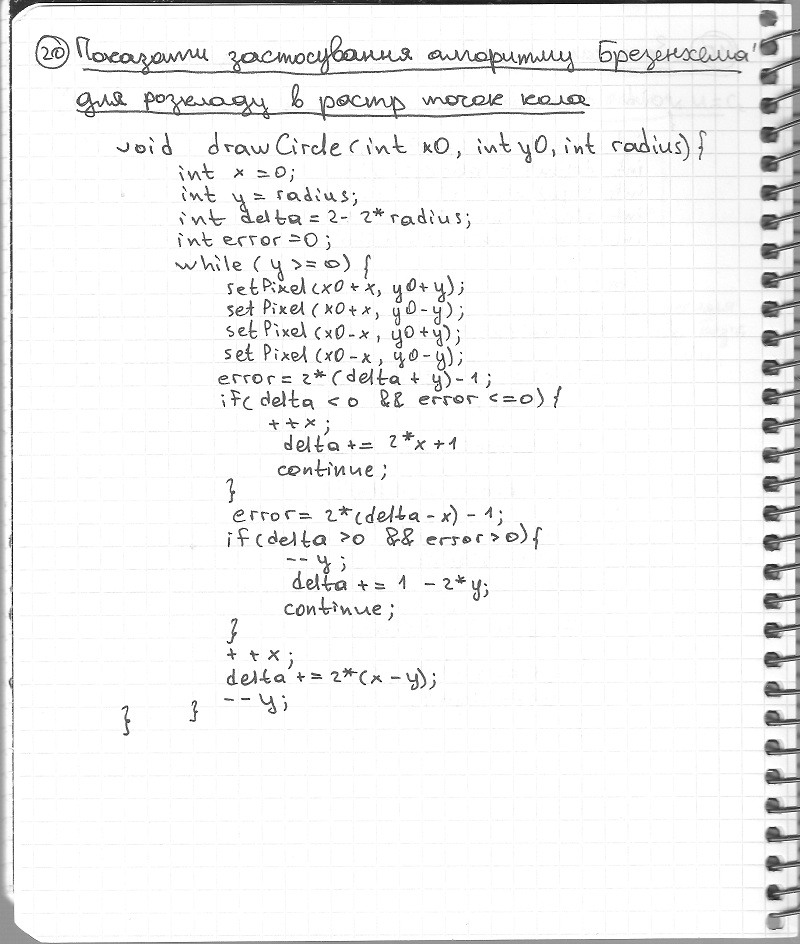 20 Показати застосування алгоритму Брезенхема
для розкладу в растр точок кола
void drawCircle(int x0, int y0, int radius){
int x = 0;
int y = radius;
int delta = 2 - 2*radius;
int error = 0;
while(y >= 0){
setPixel(x0+x, y0+y);
setPixel(x0+x, y0-y);
setPixel(x0-x, y0+y);
setPixel(x0-x, y0-y);
error = 2*(delta + y) - 1;
if(delta < 0 && error <= 0){
++x;
delta += 2*x+1
continue;
}
error = 2*(delta - x) - 1;
if(delta > 0 && error > 0){
--y;
delta += 1 - 2*y;
continue;
}
++x;
delta += 2*(x - y);
--y;
} }